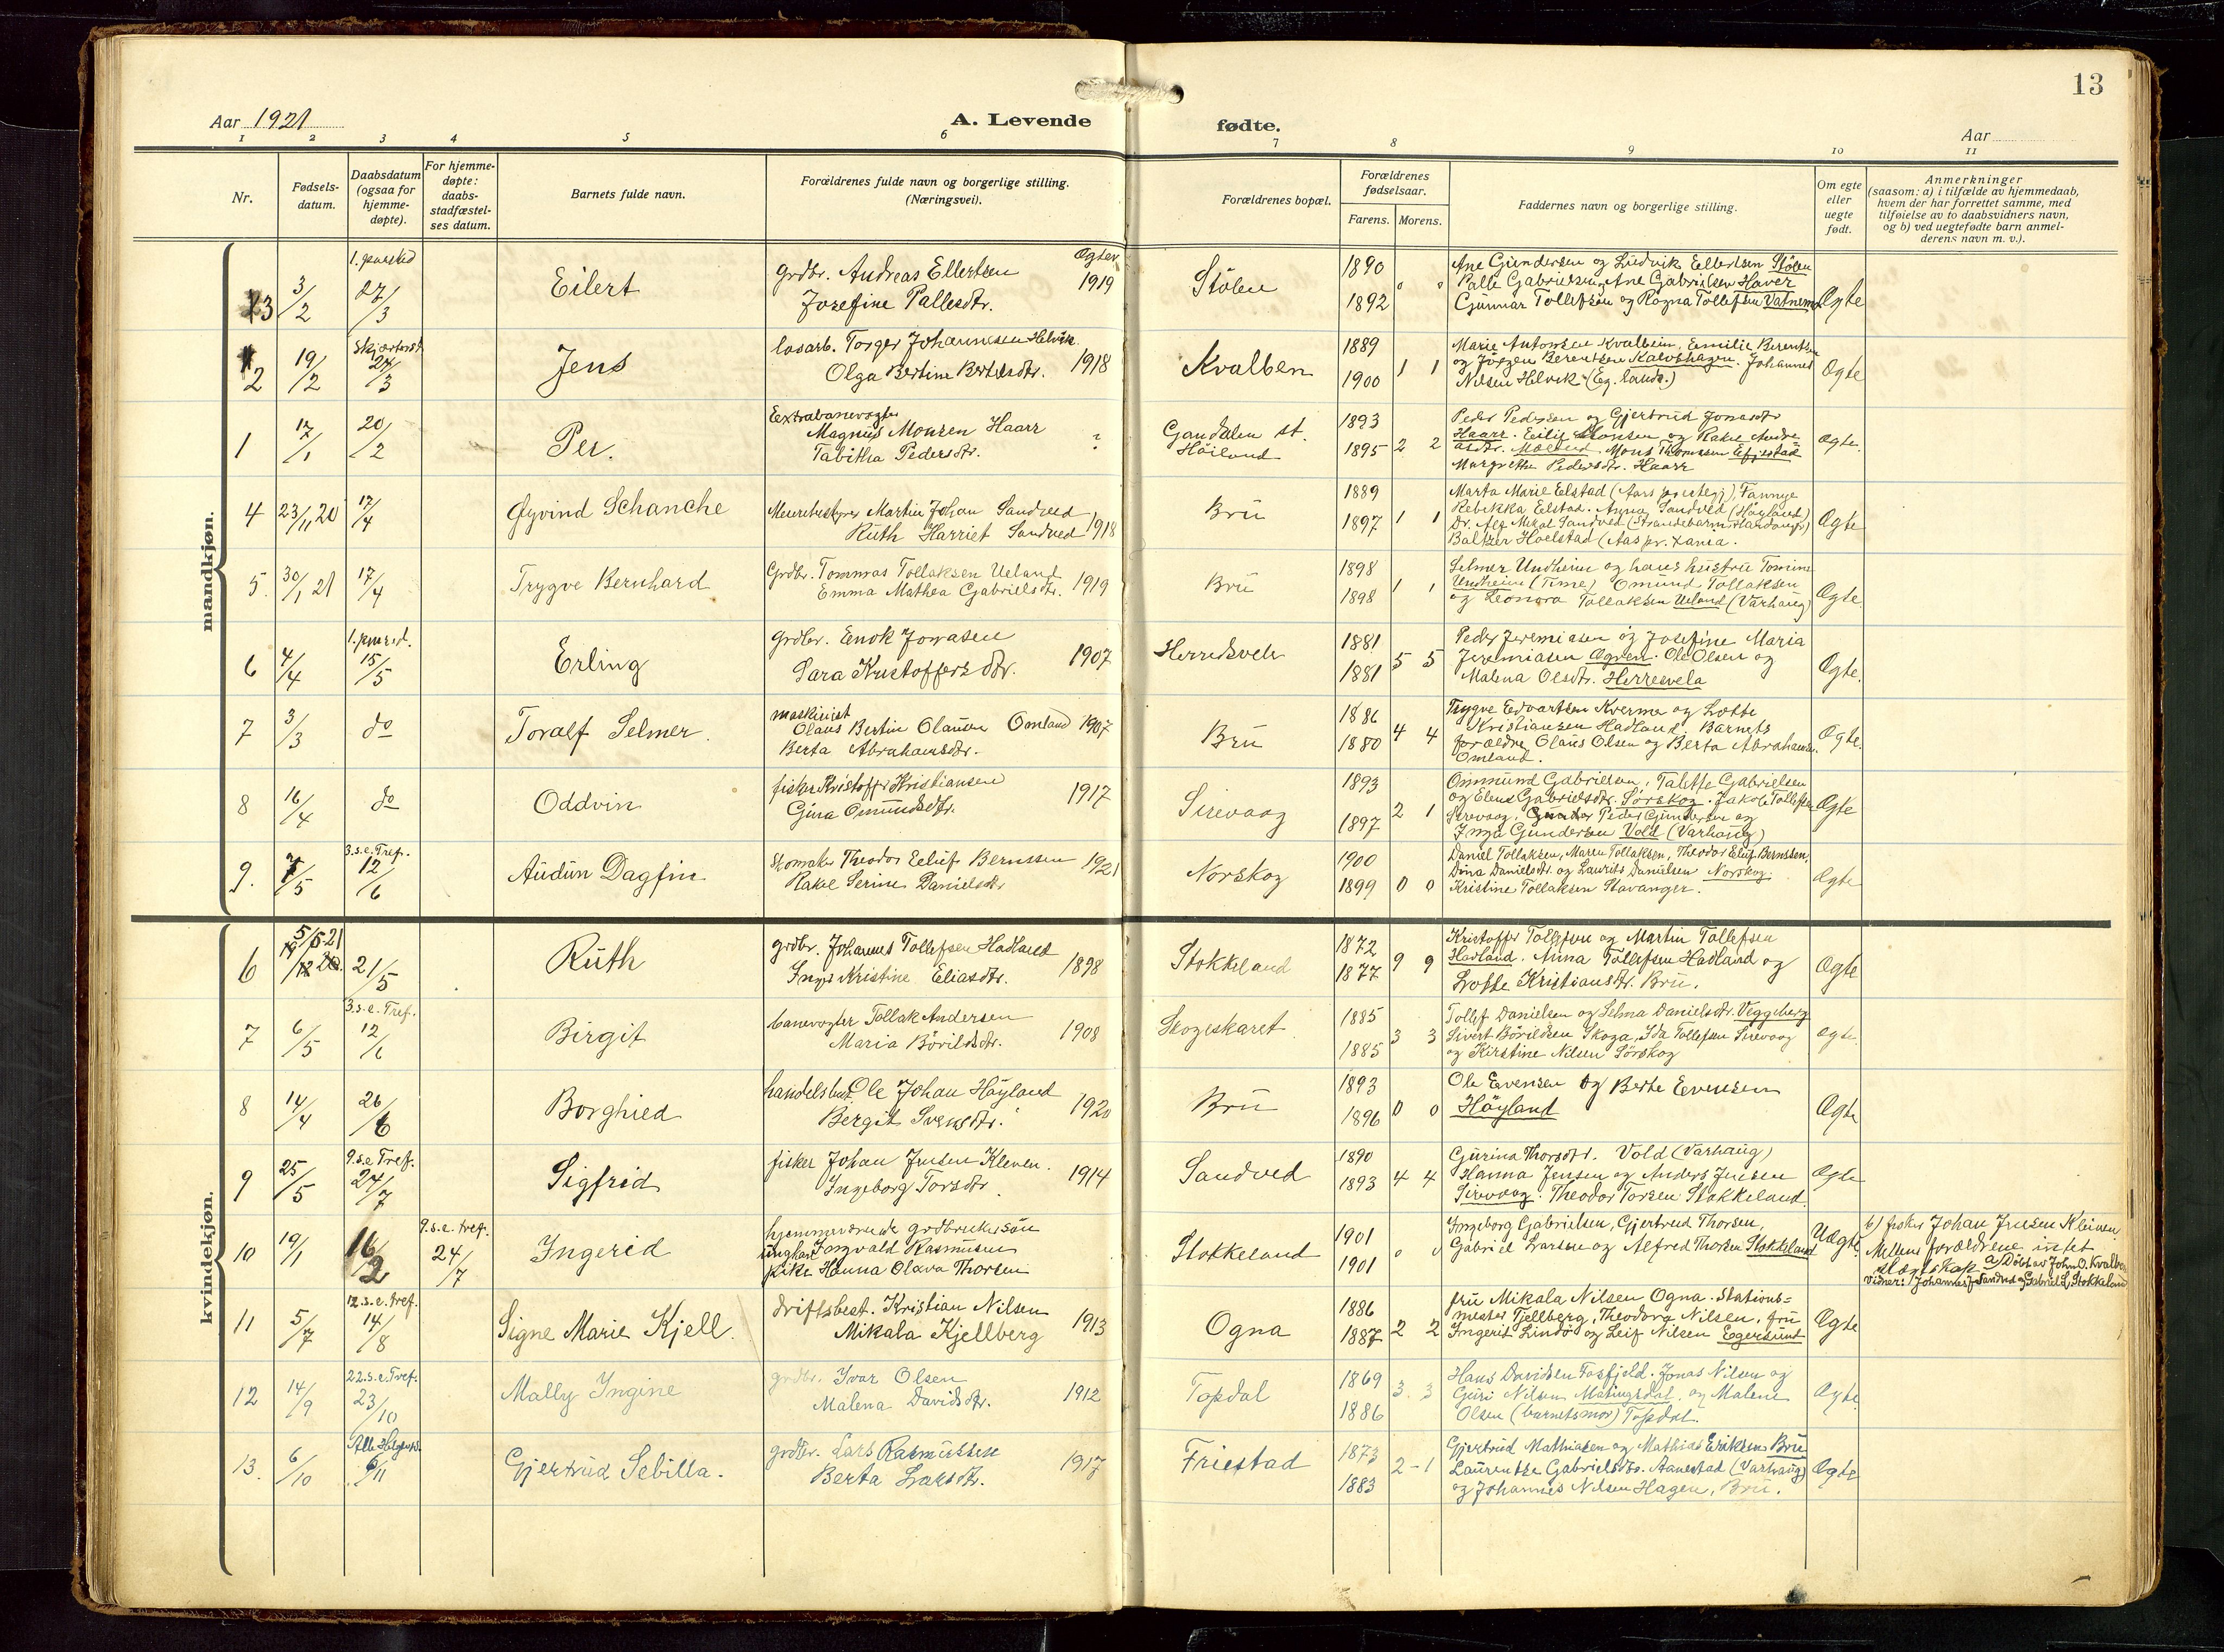 13
Aar 1921
A. Levende fødte.
Aar
1 2 3 4 5 6 7 8 9 10 11
Nr.
Fødsels-
datum.
Daabsdatum
(ogsaa for
hjemme-
døpte).
For hjemme-
døpte:
daabs-
stadfæstel-
ses datum.
Barnets fulde navn.
Forældrenes fulde navn og borgerlige stilling.
(Næringsvei).
Forældrenes bopæl.
Forældrenes
fødselsaar.
Farens. Morens.
Faddernes navn og borgerlige stilling.
Om egte
eller
uegte
født.
Anmerkninger
(saasom: a) i tilfælde av hjemmedaab,
hvem der har forrettet samme, med
tilføielse av to daabsvidners navn,
og b) ved uegtefødte barn anmel-
derens navn m. v.).
mandkjøn.
3
3/2
27/3
Eilert
grdbr. Andreas Ellertsen
Josefine Pallesdtr.
Ægtev.
1919
Stölen
1890
1892
0 0
Ane Gundersen og Ludvik Ellertsen Stölen
Palle Gabrielsen, Ane Gabrielsen Haver
Gunnar Tollefsen og Ragna Tollefsen Vatnemo
Ægte
2
19/2
24/3
Jens
løsarb. Torger Johannesen Helvik
Olga Bertine Bertelsdtr.
1918
Kvalben
1889
1900
1 1
Marie Antonsen Kvalbein, Emilie Berentsen
og Jörgen Berentsen Kalvshagen. Johannes
Nilsen Helvik (Eg. lands.)
Ægte
1
17/1
20/2
Per.
Extrabanevogter
Magnus Monsen Haarr
Tabitha Pedersdtr.
?
Gandalen st.
Höiland
1893
1895
2 2
Peder Pedersen og Gjertrud Jonasdtr
Haarr. Eilif Monsen og Rakel Andre-
asdtr. Mons Thomsen
Margrethe Pedersdtr. Haarr
Ægte.
4
23/11 20
17/4
Øyvind Schanche
Meieribestyrer Martin Johan Sandved
Ruth Harriet Sandved
1918
Brü
1889
1897
1 1
Marta Marie Elstad (Aars prestegj), Fannye
Rebekka Elstad. Anna Sandved (Høyland)
Dr. Alf Mikal Sandved (Strandebarm Hardanger)
Baltzer Hoelstad (Aas pr.
Ægte
5.
30/1 21
17/4
Trygve Bernhard
Grdbr. Tommas Tollaksen Ueland
Emma Mathea Gabrielsdtr.
1919
Brü
1898
1898
1 1
Selmer Undheim og hans hustru Tomine
Undheim (Time) Omund Tollaksen
og Leonora Tollaksen Ueland (Varhaug)
Ægte.
6
4/4
15/5
Erling
grdbr. Enok Jonasen
Sara Kristoffersdtr.
1907
Herredsvela
1881
1881
5 5
Peder Jeremiasen og Josefine Maria
Jeremiasen Ogven. Ole Olsen og
Malena Olsdtr. Herresvela
Ægte.
7
3/3
do
Toralf Selmer.
maskinist
Olaus Bertin Olausen Omland
Berta Abrahamsdtr.
1907
Brü
1886
1880
4 4
Trygve Edvartsen Kverme og Lotte
Kristiansen Hadland. Barnets
forældre Olaus Olsen og Berta Abrahams.
Omland.
Ægte.
8
16/4
do
Oddvin
fisker Kristoffer Kristiansen
Gina Omundsdtr.
1917
Sirevaag
1893
1897
2 1
Ommund Gabrielsen, Talette Gabrielsen
og Elens Gabrielsdtr. Sörskog. Jakob Tollefsen
Sirevaag. Peder Gundersen og
Inga Gundersen Vold (Varhaug)
Ægte
9.
7/5
3.s.e.Tref.
12/6
Audun Dagfin
Skomaker Theodor Eeluf Bernssen
Rakel Serine Danielsdtr
1921
Norskog
1900
1899
0 0
Daniel Tollaksen, Maren Tollaksen, Theodor Eluf Bernssen,
Dina Danielsdtr. og Laurits Danielsen Norskog.
Kristine Tollaksen Stavanger.
Ægte
kvindekjøn.
6
5/5-21
21/5
Ruth
grdbr. Johannes Tollefsen Hadland
Inga Kristine Eliasdtr.
1898
Stokkeland
1872
1877
9 9
Kristoffer Tollefsen og Martin Tollefsen
Hadland. Anna Tollefsen Hadland og
Lotte Kristiansdtr. Brü.
Ægte
7
6/5
3.s.e.Tref.
12/6
Birgit
banevogter Tollak Andersen
Maria Börildsdtr.
1908
Skogeskaret
1885
1885
3 3
Tollef Danielsen og Selma Danielsdtr. Veggeberg
Sivert Börildsen Skoga, Ida Tollefsen Sirevaag
og Kirstine Nilsen Sörskog
Ægte.
8
14/4
26/6
Borghied
handelsbest. Ole Johan Höyland
Bergit Svensdtr.
1920
Brü
1893
1896
0 0
Ole Evensen og Berte Evensen
Höyland
Ægte
9
25/5
9.s.e Tref.
24/7
Sigfrid
fisker Johan Jensen Kleven.
Ingeborg Torsdtr
1914
Sandved
1890
1893
4 4
Gurina Thorsdtr. Vold (Varhaug)
Hanna Jensen og Anders Jensen
Sirevaag. Theodor Torsen Stokkeland
Ægte
10
19/1
16/2
9.s.e. tref.
24/7
Ingerid
hjemmeværende grdbrukersøn
ungkar Ingvald Rasmusen
pike Hanna Olava Thorsen
Stokkeland
1901
1901
0 0
Ingeborg Gabrielsen, Gjertrud Thorsen,
Gabriel Larsen og Alfred Thorsen Stokkeland
Uægte.
b) fisker Johan Jensen Kleven.
Mellem forældrene intet
slægtskap. a) Döbt av John O. Kvalben
Vidner: Johannes J. Sandved og Gabriel L. Stokkeland
11
5/7
12.s.e.tref.
14/8
Signe Marie Kjell.
driftsbest. Kristian Nilsen
Mikala Kjellberg
1913
Ogna
1886
1887
2 2
fru Mikala Nilsen Ogna. Stations=
mester Tjellberg, Theodora Nilsen, fru
Ingerit Lindö og Leif Nilsen Egersund
Ægte
12
14/9
22.s.e.Tref.
23/10
Mally Ingine
grdbr. Ivar Olsen
Malena Davidsdtr.
1912
Topdal
1869
1886
3. 3
Hans Davidsen Fosfjeld. Jonas Nilsen og
Guri Nilsen Matingsdal, og Malene
Olsen (barnets mor) Topdal.
Ægte.
13.
6/10
Alle Helgensd.
6/11
Gjertrud Sebilla.
grdbr. Lars Rasmussen
Berta Larsdtr.
1917
Friestad
1873
1883
2-1
Gjertrud Mathiasen og Mathias Eriksen Brü
Laurentze Gabrielsdtr. Aanestad (Varhaug)
og Johannes Nilsen Hagen, Brü.
Ægte